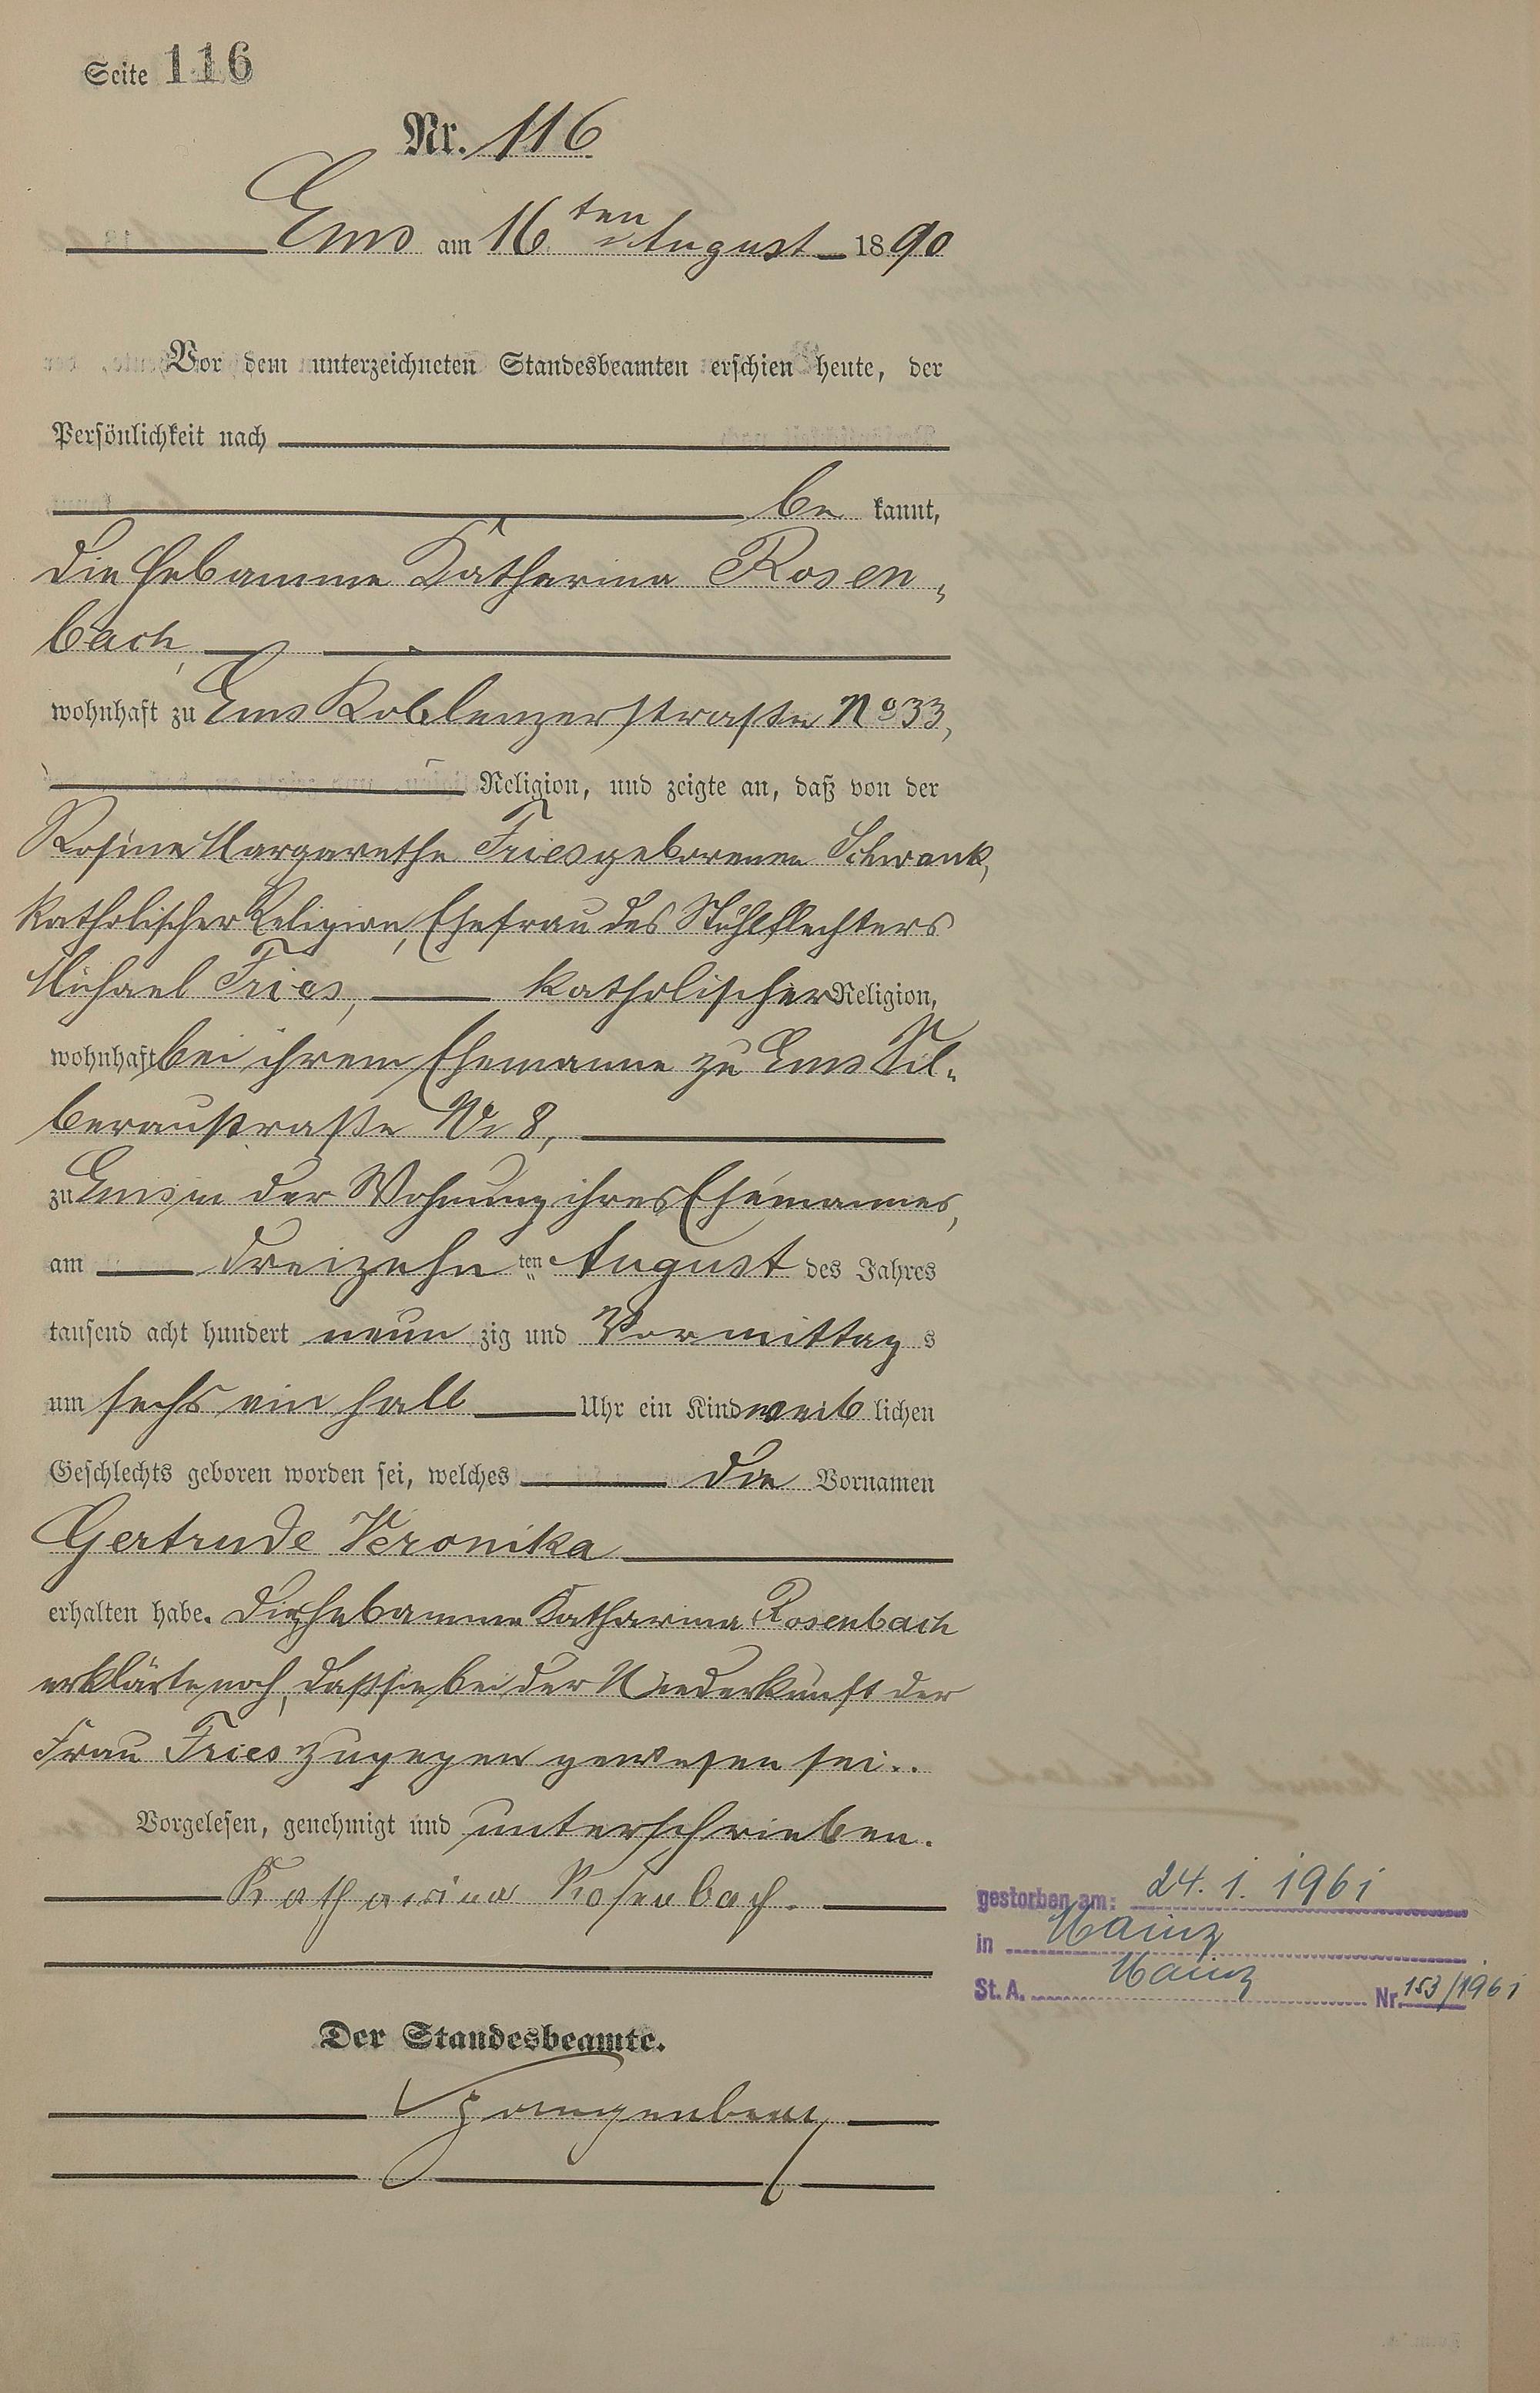 Seite 116
Nr. 116
Ems am 16ten August 1890
Vor dem unterzeichneten Standesbeamten erschien heute, der
Persönlichkeit nach
be kannt,
die Hebamme Katharina Rosen-
bach,
wohnhaft zu Ems Koblenzerstraße No 33,
Religion, und zeigte an, daß von der
Rosine Margarethe Fries geborenen Schwank,
katholischer Religion, Ehefrau des Stuhlflechters
Michael Fries, katholischer Religion,
wohnhaft bei ihrem Ehemanne zu Ems Sil-
beraustraße Nr 8,
zu Ems in der Wohnung ihres Ehemannes,
am dreizehn ten August des Jahres
tausend acht hundert neun zig und Vormittag s
um sechs ein halb Uhr ein Kind weib lichen
Geschlechts geboren worden sei, welches die Vornamen
Gertrude Veronika
erhalten habe. Die Hebamme Katharina Rosenbach
erklärte noch, daß sie bei der Niederkunft der
Frau Fries zugegen gewesen sei..
Vorgelesen, genehmigt und unterschrieben.
Katharina Rosenbach.
Der Standesbeamte.
gestorben am: 24. 1. 1961
in Mainz
St. A. Mainz Nr. 153/1961